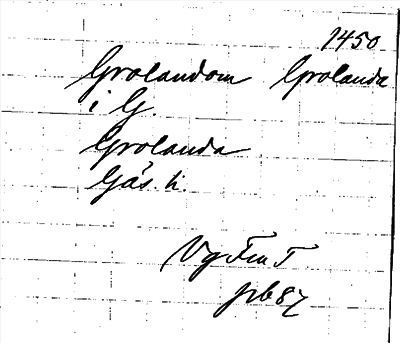 1450
Grolandom Grolanda
i G.
Grolanda
Gäs. h.
Vg Fru T
prb 87